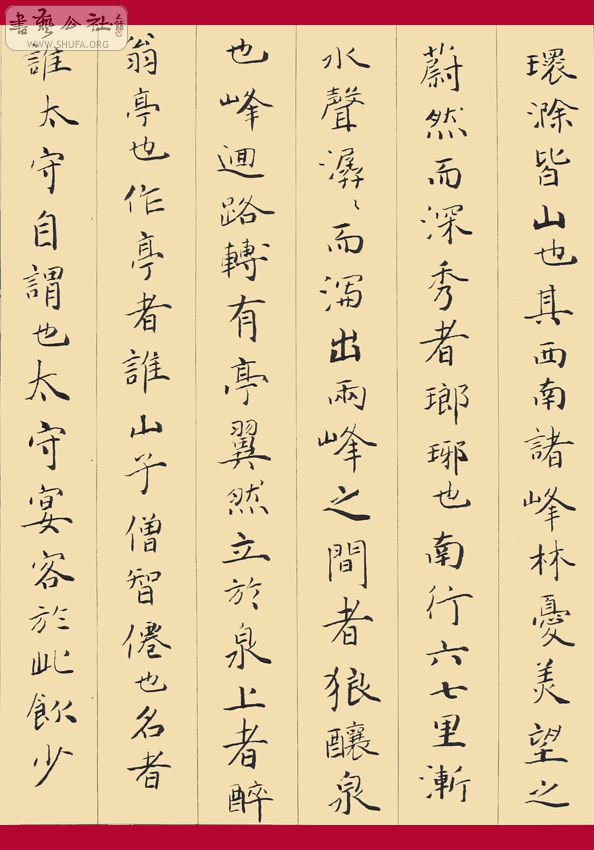 書藝公社
WWW.SHUFA.ORG
環滁皆山也其西南諸峰林憂美望之
蔚然而深秀者瑯琊也南行六七里漸
水聲潺〻而瀉出兩峰之間者狼釀泉
也峰迴路轉有亭翼然立於泉上者醉
翁亭也作亭者誰山子僧智僊也名者
誰太守自謂也太守宴客於此飲少